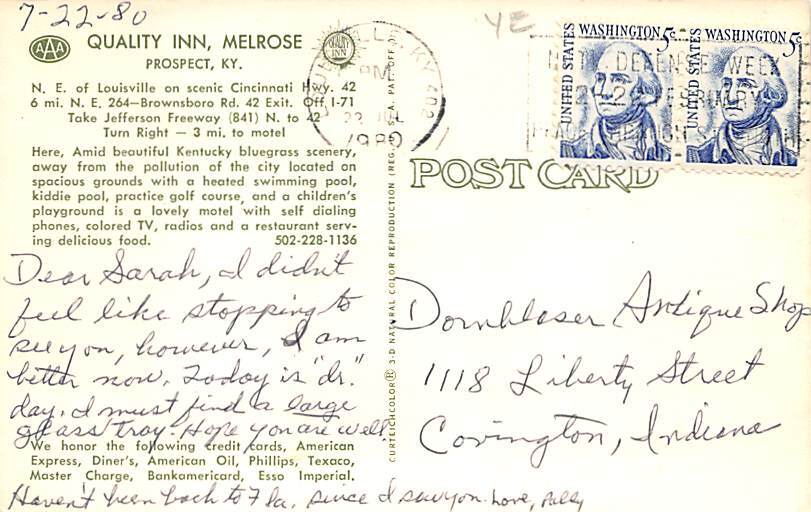 7-22-80
YE
AAA
QUALITY INN, MELROSE
QUALITY INN
PROSPECT, KY.
N. E. of Louisville on scenic Cincinnati Hwy. 42
6 mi. N. E. 264—Brownsboro Rd. 42 Exit. Off I-71
Take Jefferson Freeway (841) N. to 42
Turn Right — 3 mi. to motel
Here, Amid beautiful Kentucky bluegrass scenery,
away from the pollution of the city located on
spacious grounds with a heated swimming pool,
kiddie pool, practice golf course, and a children's
playground is a lovely motel with self dialing
phones, colored TV, radios and a restaurant serv-
ing delicious food. 502-228-1136
Dear Sarah, I didn't
feel like stopping to
see you, however, I am
better now. Today is "dr."
day. I must find a large
glass tray. Hope you are well.
We honor the following credit cards, American
Express, Diner's, American Oil, Phillips, Texaco,
Master Charge, Bankamericard, Esso Imperial.
Haven't been back to Fla. since I saw you. Love,
CURTEICHCOLOR® 3-D NATURAL COLOR REPRODUCTION (REG. U.S.A. PAT. OFF.)
KY
PM
22 JUL
1980
UNITED STATES
WASHINGTON 5c
UNITED STATES
WASHINGTON 5c
DEFENSE WEEK
POST CARD
Dornblaser Antique Shop
1118 Liberty Street
Covington, Indiana